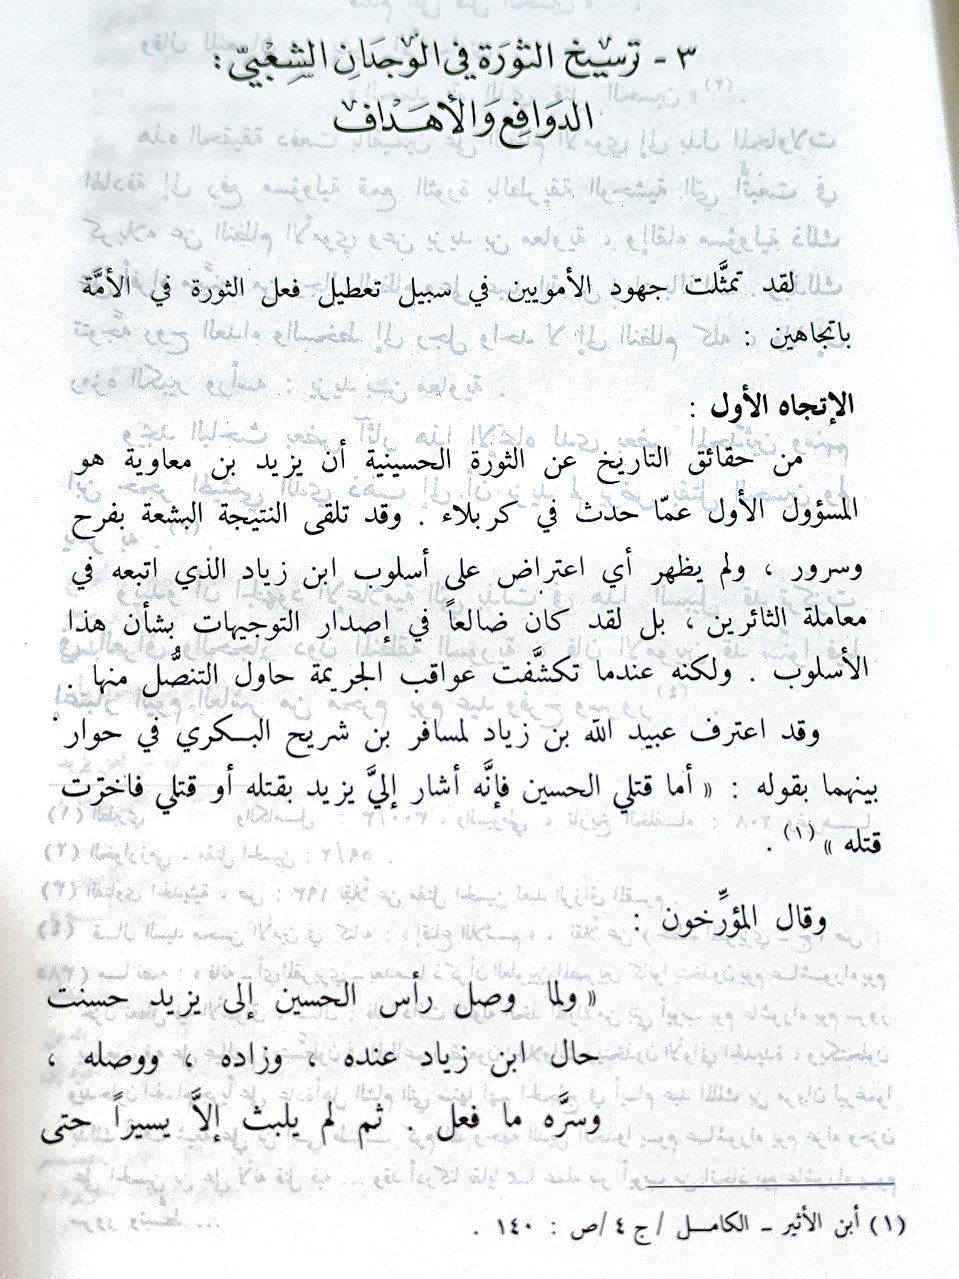 ٣ - ترسيخ الثورة في الوجدان الشعبيّ :
الدوافع والأهداف
لقد تمثَّلت جهود الأمويين في سبيل تعطيل فعل الثورة في الأمَّة
باتجاهين :
الإتجاه الأول :
من حقائق التاريخ عن الثورة الحسينية أن يزيد بن معاوية هو
المسؤول الأول عمّا حدث في كربلاء . وقد تلقى النتيجة البشعة بفرح
وسرور ، ولم يظهر أي اعتراض على أسلوب ابن زياد الذي اتبعه في
معاملة الثائرين ، بل لقد كان ضالعاً في إصدار التوجيهات بشأن هذا
الأسلوب . ولكنه عندما تكشَّفت عواقب الجريمة حاول التنصُّل منها .
وقد اعترف عبيد الله بن زياد لمسافر بن شريح البكري في حوار
بينهما بقوله : « أما قتلي الحسين فإنَّه أشار إليَّ يزيد بقتله أو قتلي فاخترت
قتله »(١) .
وقال المؤرِّخون :
« ولما وصل رأس الحسين إلى يزيد حسنت
حال ابن زياد عنده ، وزاده ، ووصله ،
وسرَّه ما فعل . ثم لم يلبث إلاَّ يسيراً حتى
(١) أبن الأثير - الكامل / ج ٤ /ص : ١٤٠ .